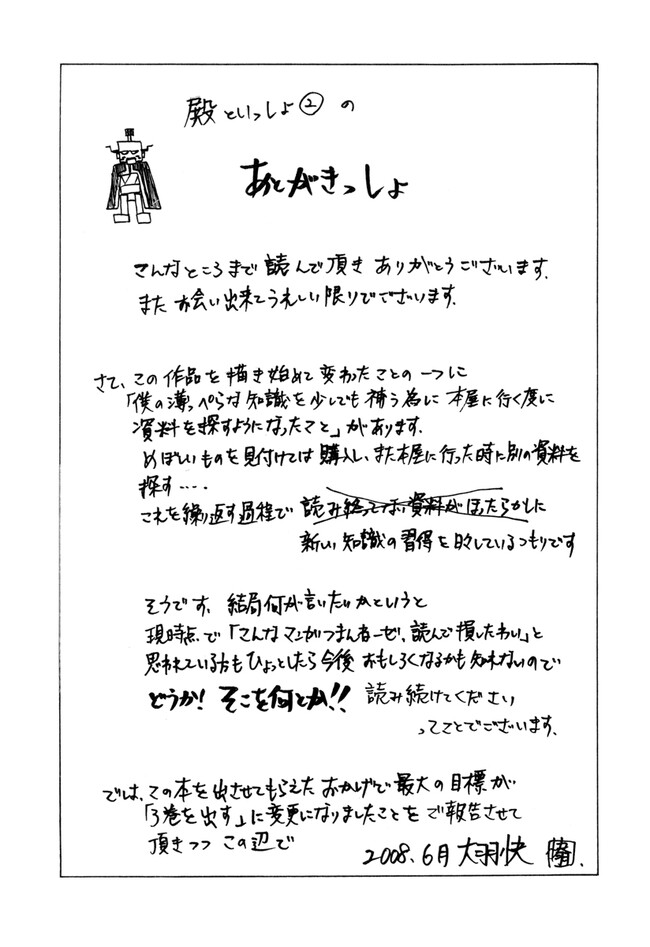 殿といっしょ②の
あとがきっしょ
こんなところまで読んで頂きありがとうございます。
またお会い出来てうれしい限りでございます。
さて、この作品を描き始めて変わったことの一つに
「僕の薄っぺらな知識を少しでも補う為に本屋に行く度に
資料を探すようになったこと」があります。
めぼしいものを見付けては購入し、また本屋に行った時に別の資料を
探す‥‥
これを繰り返す過程で 読み終ってない資料がほったらかしに
新しい知識の習得を日々しているつもりです
そうです、結局何が言いたいかというと
現時点で「こんなマンガつまんねーぜ、読んで損したわい」と
思われている方もひょっとしたら今後おもしろくなるかも知れないので
どうか!そこを何とか!!読み続けてください
ってことでございます。
では、この本を出させてもらえたおかげで最大の目標が
「3巻を出す」に変更になりましたことをご報告させて
頂きつつこの辺で
2008.6月 大羽快